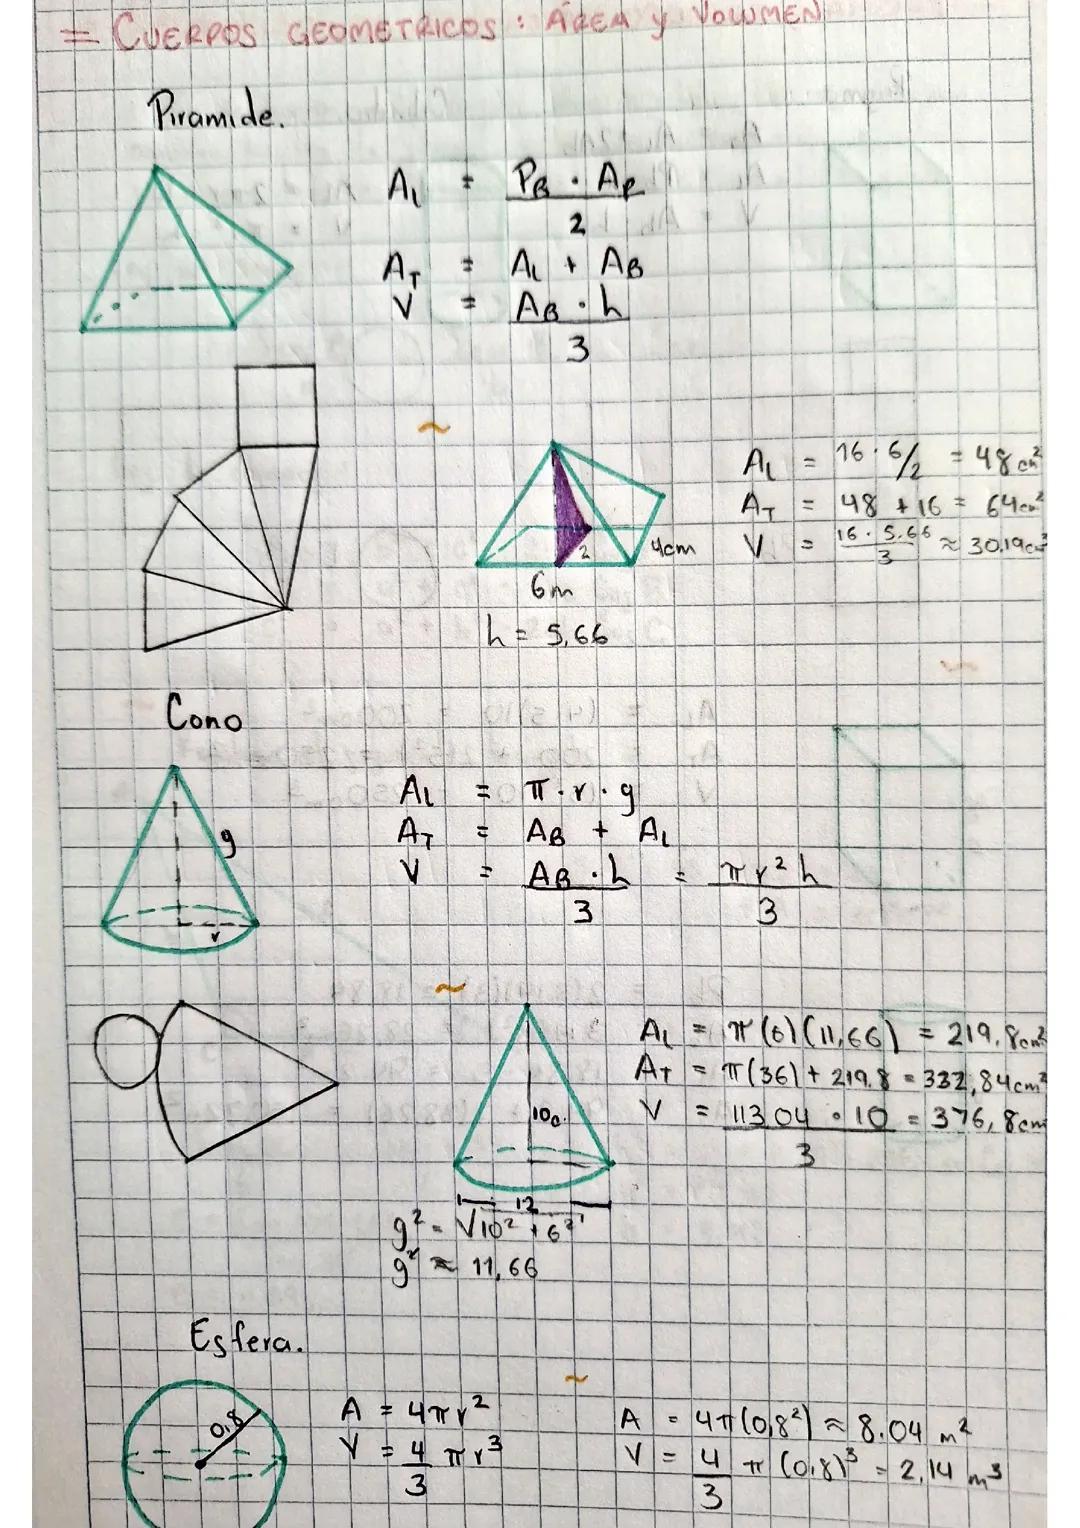 = CUERPOS GEOMETRICOS : ÁREA y VOLUMEN
Piramide.
A_L = P_B · A_P / 2
A_T = A_L + A_B
V = A_B · h / 3
~
A_L = 16 · 6/2 = 48 cm²
A_T = 48 + 16 = 64cm²
V = 16 · 5.66 / 3 ≈ 30,19cm³
2
4cm
6m
h = 5,66
Cono
g
r
A_L = π · r · g
A_T = A_B + A_L
V = A_B · h / 3 = π r² h / 3
~
10c.
12
A_L = π (6) (11,66) = 219,8cm²
A_T = π (36) + 219.8 = 332,84cm²
V = 113.04 · 10 / 3 = 376,8cm
g² = √10² + 6²
g² ≈ 11,66
Esfera.
~
0,8
A = 4πr²
V = 4/3 π r³
A = 4π(0,8²) ≈ 8.04 m²
V = 4/3 π (0,8)³ = 2,14 m³